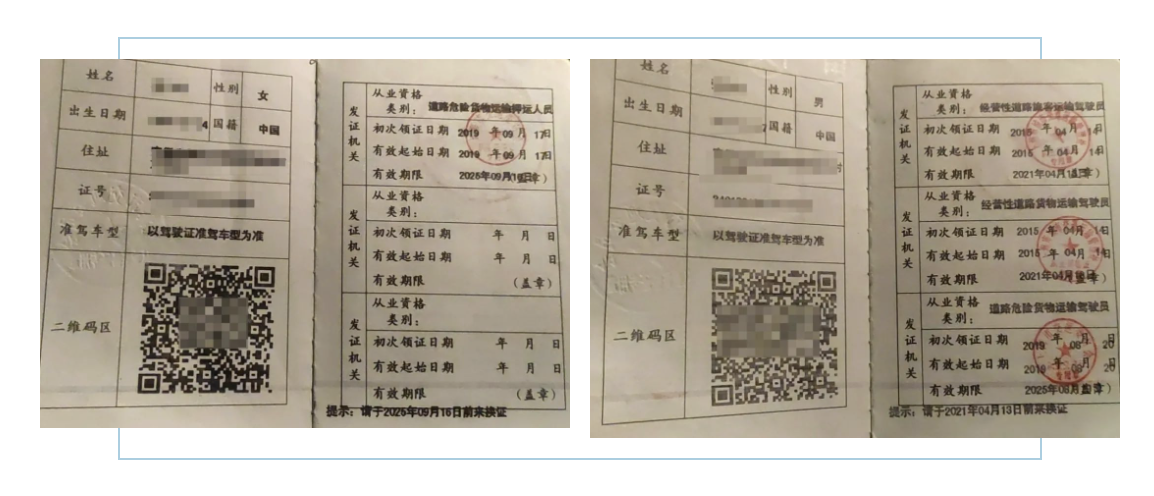 姓名
性别
女
出生日期
4
国籍
中国
住址
证号
准驾车型
以驾驶证准驾车型为准
二维码区
发证机关
从业资格类别:
道路危险货物运输押运人员
初次领证日期 2019 年 09 月 17日
有效起始日期 2019 年 09 月 17日
有效期限 2025年09月16日(盖章)
发证机关
从业资格类别:
初次领证日期 年 月 日
有效起始日期 年 月 日
有效期限 (盖章)
发证机关
从业资格类别:
初次领证日期 年 月 日
有效起始日期 年 月 日
有效期限 (盖章)
提示:请于2025年09月16日前来换证
姓名
性别
男
出生日期
国籍
中国
住址
证号
准驾车型
以驾驶证准驾车型为准
二维码区
发证机关
从业资格类别:
经营性道路旅客运输驾驶员
初次领证日期 2015 年 04 月 14日
有效起始日期 2015 年 04 月 14日
有效期限 2021年04月13日(盖章)
发证机关
从业资格类别:
经营性道路货物运输驾驶员
初次领证日期 2015 年 04月 14日
有效起始日期 2015 年 04月 14日
有效期限 2021年04月13日(盖章)
发证机关
从业资格类别:
道路危险货物运输驾驶员
初次领证日期 2019 年 08 月 20
有效起始日期 2019 年 08 月 20
有效期限 2025年08月 (盖章)
提示:请于2021年04月13日前来换证